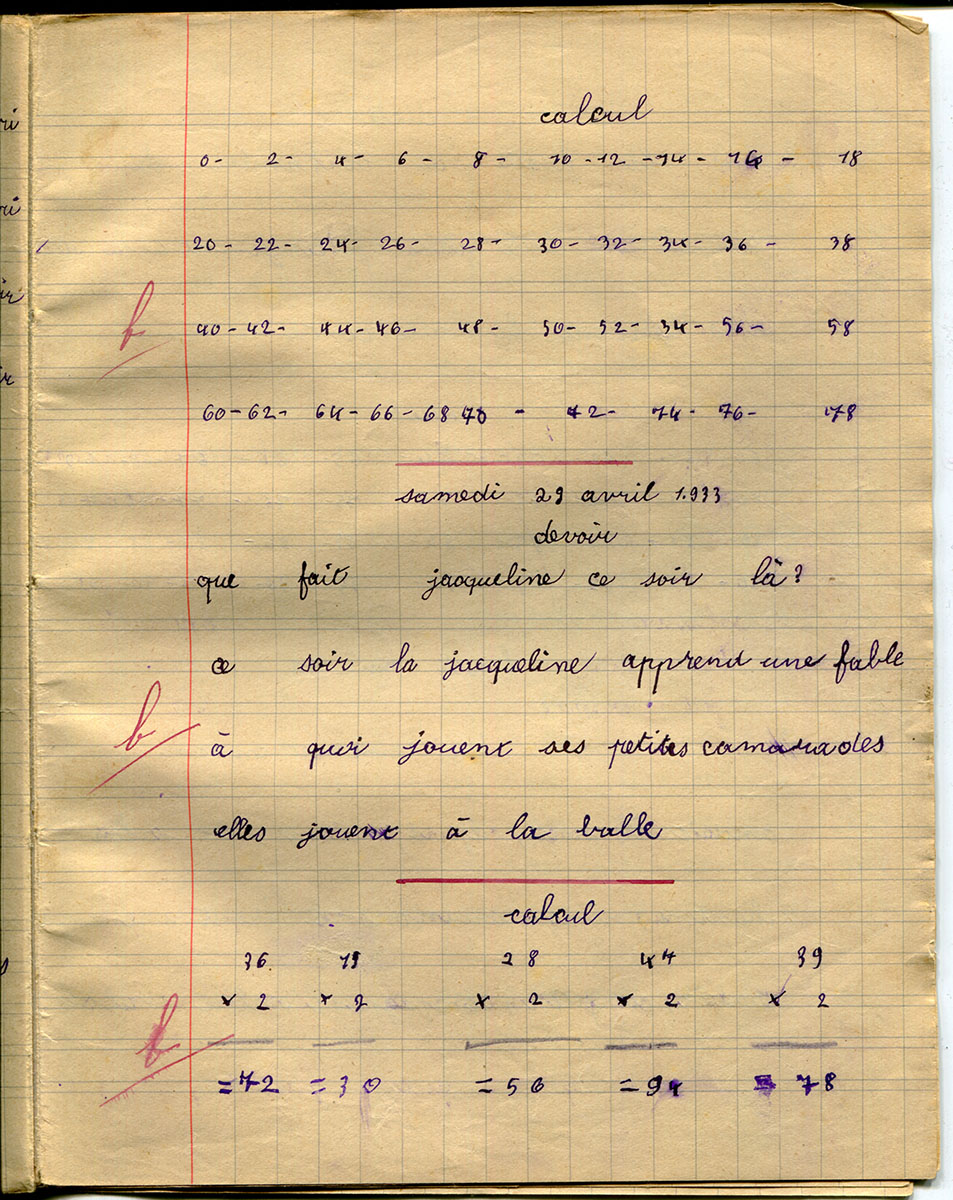 calcul
0- 2- 4- 6- 8- 10- 12- 14- 16- 18
20- 22- 24- 26- 28- 30- 32- 34- 36- 38
b
40- 42- 44- 46- 48- 50- 52- 34- 56- 58
60- 62- 64- 66- 68 70- 72- 74- 76- 78
samedi 29 avril 1.933
devoir
que fait jacqueline ce soir là?
ce soir la jacqueline apprend une fable
b
à quoi jouent ses petites camarades
elles jouent à la balle
calcul
36 15 28 47 39
x 2 x 2 x 2 x 2 x 2
b
=72 =30 =56 =94 = 78